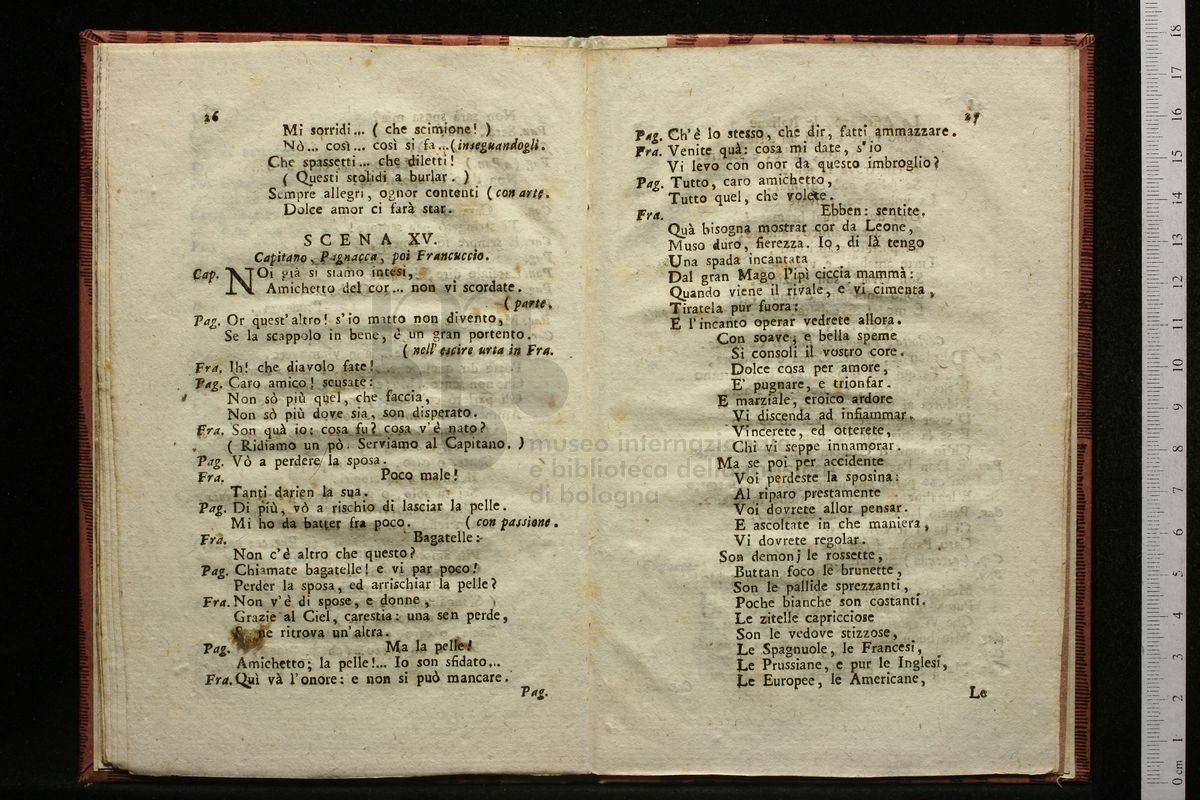 26
Mi sorridi... ( che scimione! )
Nò... così... così si fa...(inseguandogli.
Che spassetti... che diletti!
( Questi stolidi a burlar. )
Sempre allegri, ognor contenti ( con arte.
Dolce amor ci farà star.
SCENA XV.
Capitano, Pagnacca, poi Francuccio.
Cap. NOi già si siamo intesi,
Amichetto del cor... non vi scordate.
( parte.
Pag. Or quest'altro! s'io matto non divento,
Se la scappolo in bene, è un gran portento.
( nell' escire urta in Fra.
Fra. Ih! che diavolo fate!
Pag. Caro amico! scusate:
Non sò più quel, che faccia,
Non sò più dove sia, son disperato.
Fra. Son quà io: cosa fu? cosa v'è nato?
( Ridiamo un pò. Serviamo al Capitano. )
Pag. Vò a perdere la sposa.
Fra. Poco male!
Tanti darien la sua.
Pag. Di più, vò a rischio di lasciar la pelle.
Mi ho da batter fra poco. ( con passione.
Fra. Bagatelle:
Non c'è altro che questo?
Pag. Chiamate bagatelle! e vi par poco!
Perder la sposa, ed arrischiar la pelle?
Fra. Non v'è di spose, e donne,
Grazie al Ciel, carestia: una sen perde,
ne ritrova un'altra.
Pag. Ma la pelle!
Amichetto; la pelle!... Io son sfidato...
Fra. Quì và l'onore: e non si può mancare.
Pag.
27
Pag. Ch'è lo stesso, che dir, fatti ammazzare.
Fra. Venite quà: cosa mi date, s'io
Vi levo con onor da questo imbroglio?
Pag. Tutto, caro amichetto,
Tutto quel, che volete.
Fra. Ebben: sentite.
Quà bisogna mostrar cor da Leone,
Muso duro, fierezza. Io, di là tengo
Una spada incantata
Dal gran Mago Pipì ciccia mammà:
Quando viene il rivale, e vi cimenta,
Tiratela pur fuora:
E l'incanto operar vedrete allora.
Con soave, e bella speme
Si consoli il vostro core.
Dolce cosa per amore,
E' pugnare, e trionfar.
E marziale, eroico ardore
Vi discenda ad infiammar.
Vincerete, ed otterete,
Chi vi seppe innamorar.
Ma se poi per accidente
Voi perdeste la sposina:
Al riparo prestamente
Voi dovrete allor pensar.
E ascoltate in che maniera,
Vi dovrete regolar.
Son demonj le rossette,
Buttan foco le brunette,
Son le pallide sprezzanti,
Poche bianche son costanti.
Le zitelle capricciose
Son le vedove stizzose,
Le Spagnuole, le Francesi,
Le Prussiane, e pur le Inglesi,
Le Europee, le Americane,
Le
museo internaz
e biblioteca del
di bologna
0 cm 1 2 3 4 5 6 7 8 9 10 11 12 13 14 15 16 17 18